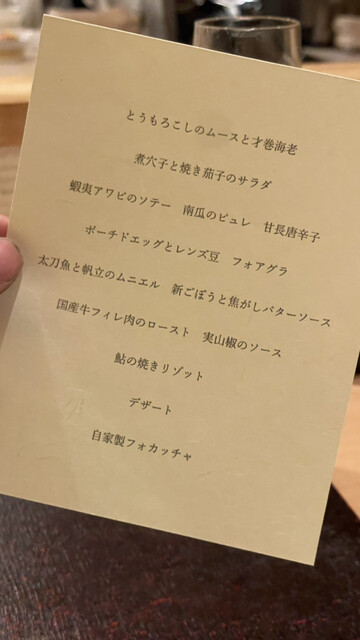 とうもろこしのムースと才巻海老
煮穴子と焼き茄子のサラダ
蝦夷アワビのソテー　南瓜のピュレ　甘長唐辛子
ポーチドエッグとレンズ豆　フォアグラ
太刀魚と帆立のムニエル　新ごぼうと焦がしバターソース
国産牛フィレ肉のロースト　実山椒のソース
鮎の焼きリゾット
デザート
自家製フォカッチャ